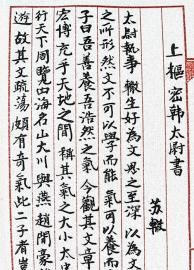 上樞密韩太尉書
苏轍
太尉執事轍生好為文思之至深以為文
之所形然文不可以學而能氣可以養而
子曰吾善養吾浩然之氣今觀其文章
宏博充乎天地之間稱其氣之大小太史
行天下周覽四海名山大川與燕趙間豪
遊故其文疏蕩頗有奇氣此二子者豈